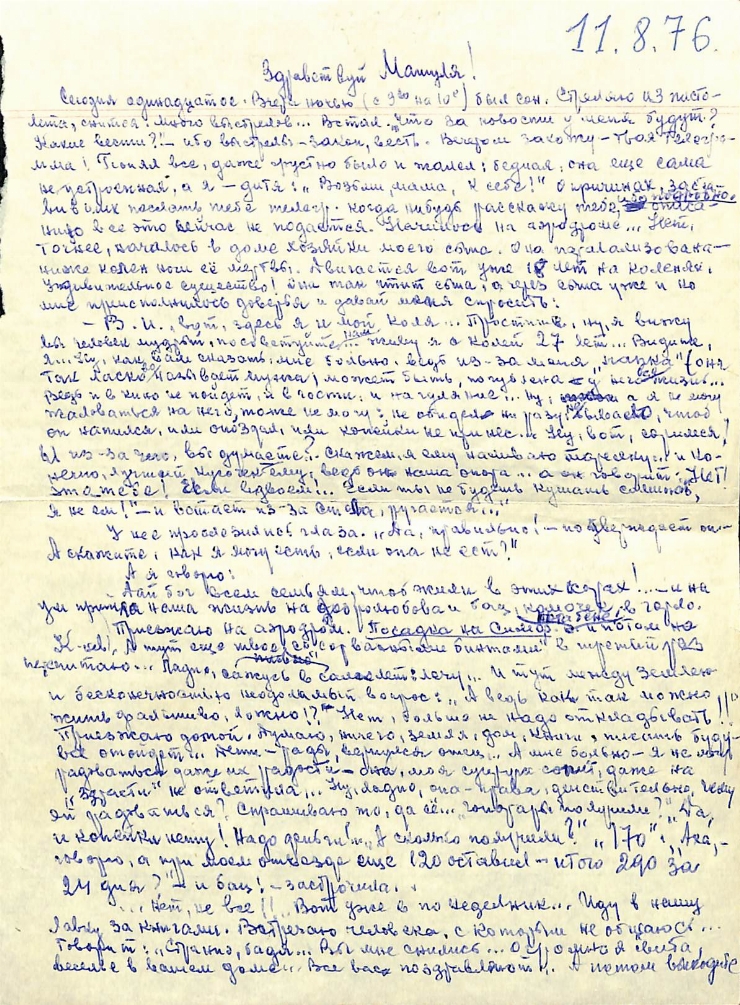 11.8.76.
Здравствуй Машуля!
Сегодня одинадцатое. Вчера ночью (с 9го на 10е) был сон. Стреляю из писто-
лета, снится много выстрелов... Встал. "Что за новости у меня будут?
Какие вести?" – ибо выстрелы – закон, весть. Вечером захожу – твоя телегра-
мма! Понял все, даже грустно было и жалел: бедная, она еще сама
не устроенная, а я – дитя: "Возьми мама, к себе!" О причинах, заста-
вивших послать тебе телегр. когда нибудь расскажу тебе, ибо подробно
все это сейчас не подается. Началось на аэродроме... Нет,
точнее, началось в доме хозяйки моего сына. Она парализована –
ниже колен ноги её мертвы. Двигается вот уже лет на коленях.
Удивительное существо! Они так чтит сына, а через сына уже и ко
мне приисполнилось доверья и давай меня спросить:
– В. И., вот, здесь я и мой Коля... Простите, ну, я вижу
вы человек мудрый, посоветуйте нам... живу я с Колей 27 лет... Видите,
я... Ну, как вам сказать, мне больно. Ведь из-за меня "папка" (она
так ласково называет мужа) может быть, погублена у него вся жизнь...
Ведь и в кино не пойдет, и в гости, и на гуляние... Ну, а я не могу
жаловаться на него, тоже не могу: не обидел ни разу, не бывает, чтоб
он напился, или опоздал, или копейки не принес... Ну, вот, соримся,
и из-за чего, вы думаете? Скажем, я ему наливаю тарелку... и ко-
нечно, лучший кусочек ему, ведь он наша опора... а он говорит: "Нет!
Это тебе! Если вдвоем!... если ты не будешь кушать со мной,
я не ем!" – и встает из-за стола, ругается..."
У нее прослезились глаза. "Да, правильно! – подтверждает он –
А скажите, как я могу есть, если она не ест?"
А я говорю:
– Дай бог всем семьям, чтоб жили в этих ссорах!... – и на
ум пришла наша жизнь на Добролюбова и бац, комочек в горло.
Приезжаю на аэродром. Посадка на Симф. и потом на
К-нев. А тут еще твое "со рваными бинтами" в третий раз
перечитаю... Ладно, сажусь в самолет: лечу... И тут между землею
и бесконечностью неодолимый вопрос: "А ведь как так можно
жить фальшиво, ложно!?" "Нет, больше не надо откладывать!!"
Приезжаю домой. Думаю, ничего, земля, дом, книги, писать буду –
все отойдет... Дети – рады, вернулся отец... А мне больно – я не могу
радоваться даже их радости – она, моя супруга даже на
"Здрасти" не ответила... Ну, ладно, она – права, действительно, чему
ей радоваться? Спрашиваю то, да сё... "Гонорары получили?" "Да,
и копейки нету! Надо деньги!" "А сколько получили?" "170". "Ага, –
говорю, а при моем отъезде еще 120 оставил – итого 290 за
24 дня?" – и бац! – застрочила.
... Нет, не все!! Вот уже в понеделник... Иду в нашу
лавку за книгами. Встречаю человека, с которым не общаюсь...
Говорит: "Странно, бадя... Вы мне снились... Огромная свита,
веселье в вашем доме... Все вас поздравляют... А потом выходите